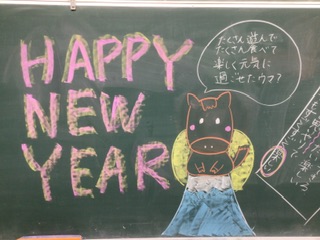 HAPPY
NEW
YEAR
たくさん遊んで
たくさん食べて
楽しく元気に
過ごせたウマ?